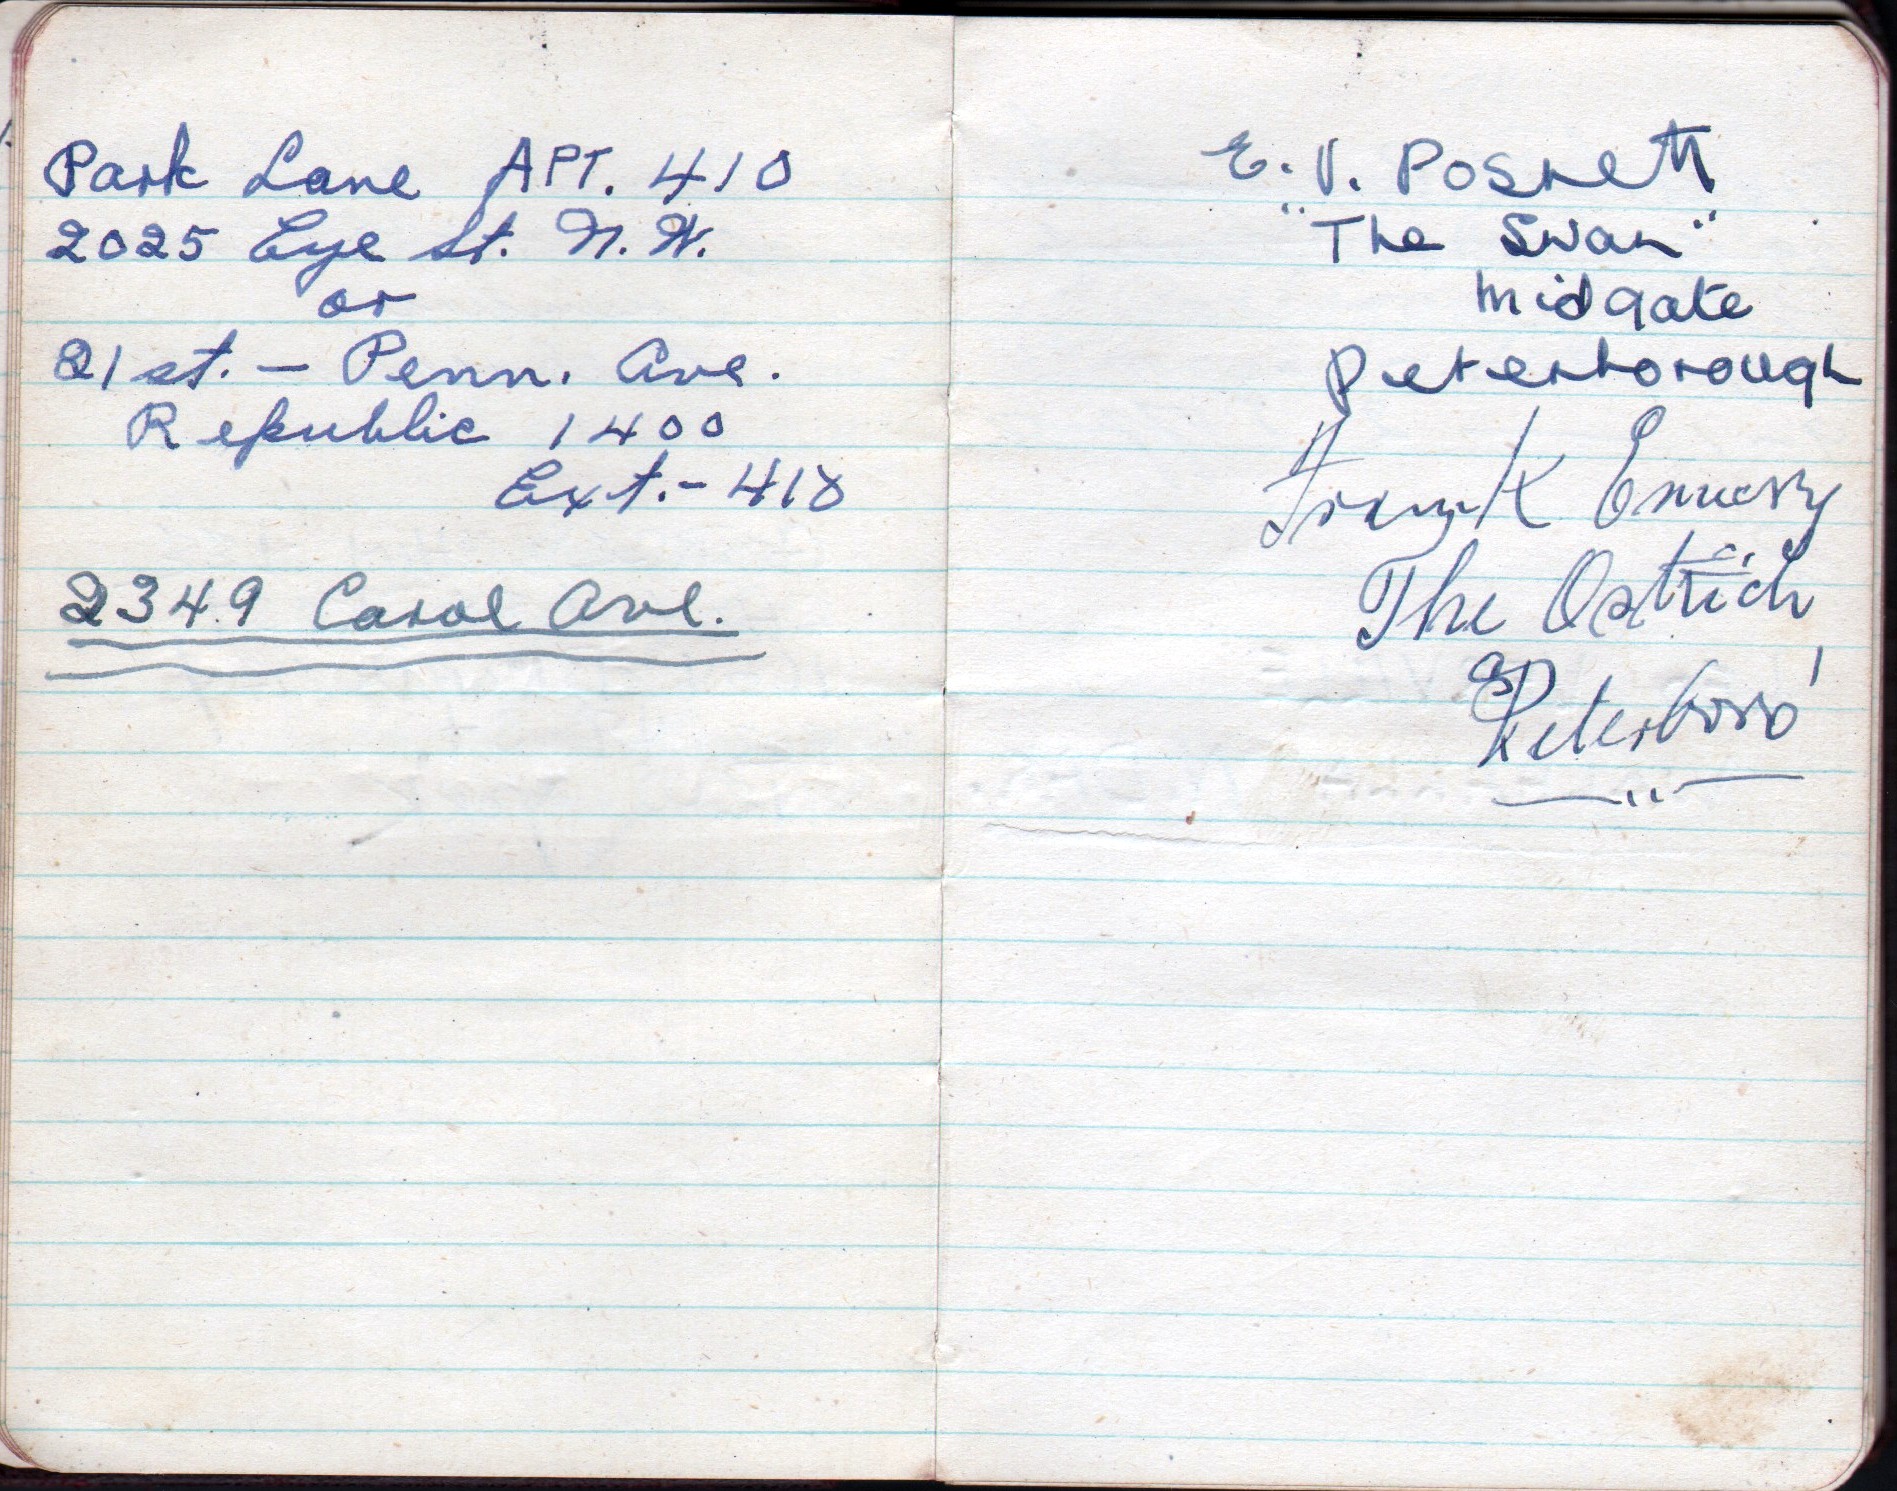 Park Lane APT. 410
2025 Eye St. N.W.
or
21st. — Penn. Ave.
Republic 1400
Ext. - 410
2349 Carol Ave.
E. V. Posnett
"The Swan"
Midgate
Peterborough
Frank Emery
The Ostrich
Peterboro'